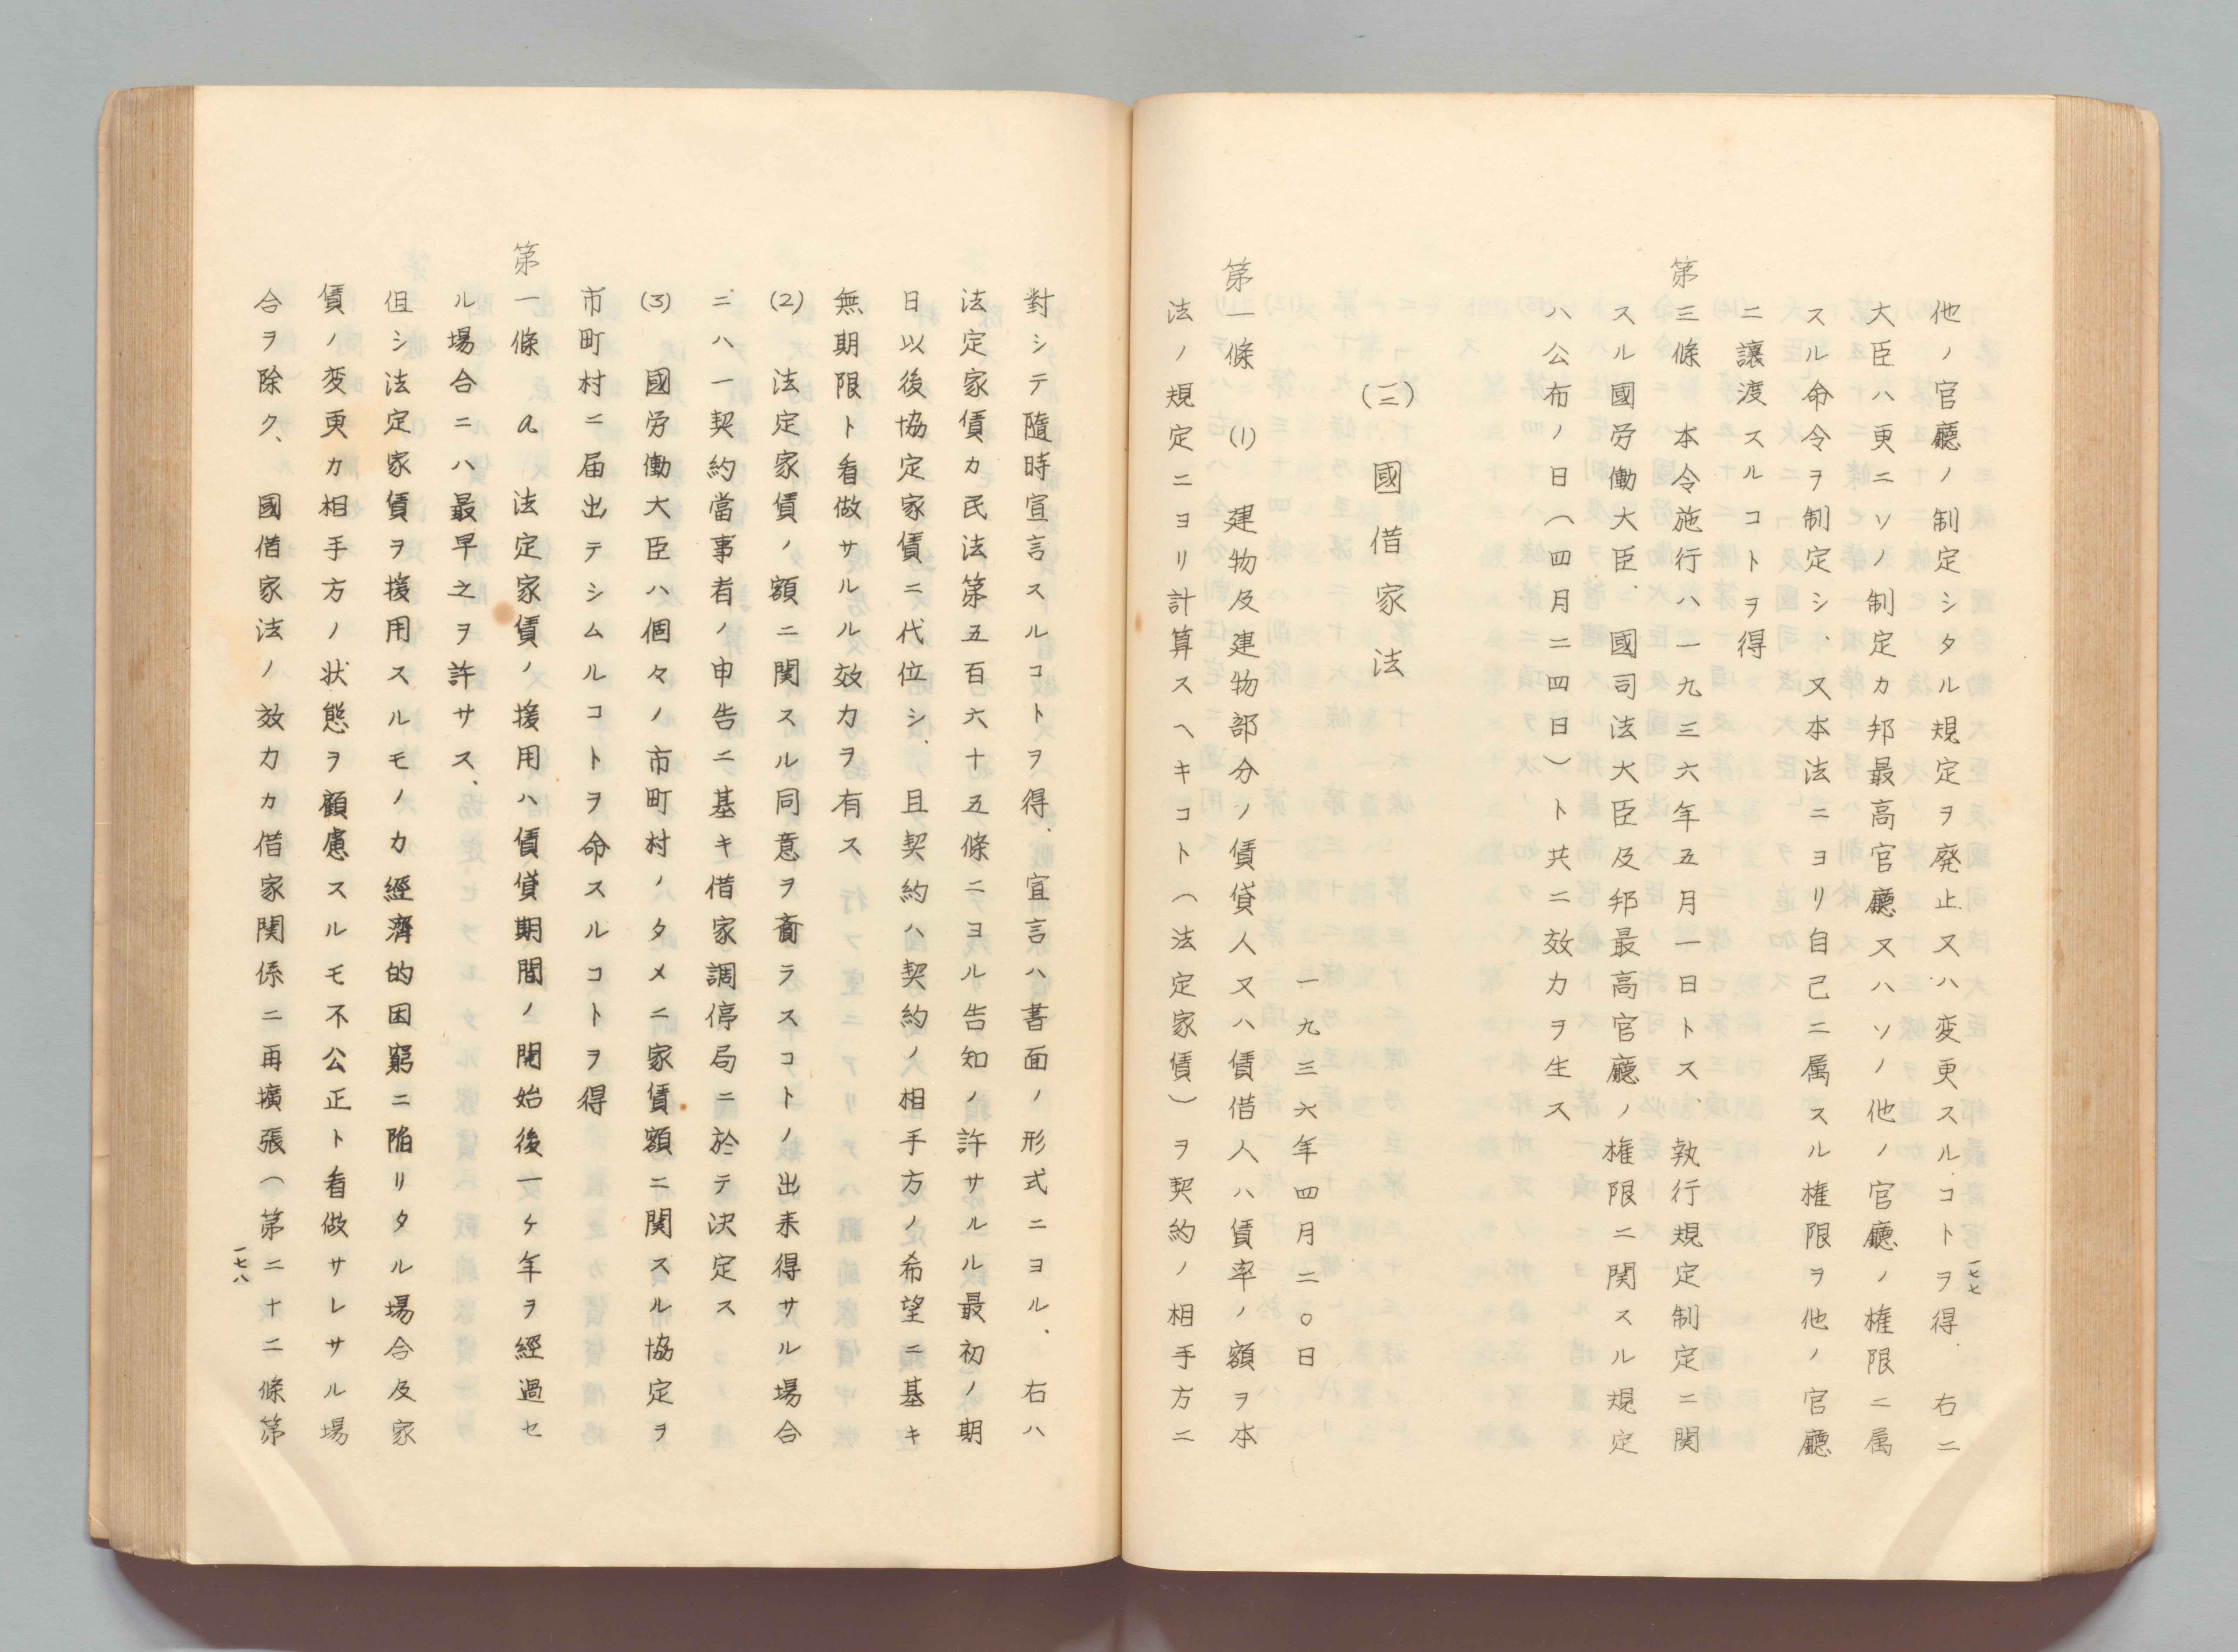 他ノ官廳ノ制定シタル規定ヲ廃止又ハ変更スルコトヲ得、右ニ
大臣ハ更ニソノ制定カ邦最高官廳又ハソノ他ノ官廳ノ権限ニ属
スル命令ヲ制定シ、又本法ニヨリ自己ニ属スル権限ヲ他ノ官廳
ニ讓渡スルコトヲ得
第三條 本令施行ハ一九三六年五月一日トス、執行規定制定ニ関
スル國労働大臣、國司法大臣及邦最高官廳ノ権限ニ関スル規定
ハ公布ノ日(四月二四日)ト共ニ效力ヲ生ス
(三) 國借家法
一九三六年四月二〇日
第一條 (1) 建物及建物部分ノ賃貸人又ハ賃借人ハ賃率ノ額ヲ本
法ノ規定ニヨリ計算スヘキコト(法定家賃)ヲ契約ノ相手方ニ
一七七
對シテ隨時宣言スルコトヲ得、宣言ハ書面ノ形式ニヨル、右ハ
法定家賃カ民法第五百六十五條ニヨル告知ノ許サルル最初ノ期
日以後協定家賃ニ代位シ、且契約ハ契約ノ相手方ノ希望ニ基キ
無期限ト看做サルル效力ヲ有ス
(2) 法定家賃ノ額ニ関スル同意ヲ齎ラスコトノ出来得サル場合
ニハ一契約當事者ノ申告ニ基キ借家調停局ニ於テ決定ス
(3) 國労働大臣ハ個々ノ市町村ノタメニ家賃額ニ関スル協定ヲ
市町村ニ届出テシムルコトヲ命スルコトヲ得
第一條a 法定家賃ノ援用ハ賃貸期間ノ開始後一ケ年ヲ經過セ
ル場合ニハ最早之ヲ許サス、
但シ法定家賃ヲ援用スルモノカ經濟的困窮ニ陥リタル場合及家
賃ノ変更カ相手方ノ状態ヲ顧慮スルモ不公正ト看做サレサル場
合ヲ除ク、國借家法ノ效力カ借家関係ニ再擴張(第二十二條第
一七八